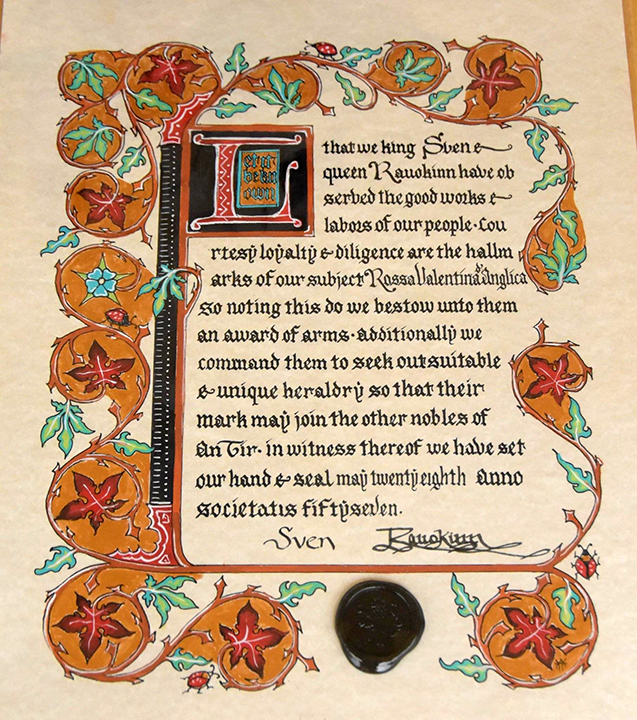 Let it
be kn
own
that we king Sven &
queen Rauokinn have ob
served the good works &
labors of our people. Cou
rtesy loyalty & diligence are the hallm
arks of our subject Rossa Valentina d'Anglica
so noting this do we bestow unto them
an award of arms. additionally we
command them to seek out suitable
& unique heraldry so that their
mark may join the other nobles of
An Tir. in witness thereof we have set
our hand & seal may twenty eighth anno
societatis fifty seven.
Sven Rauokinn